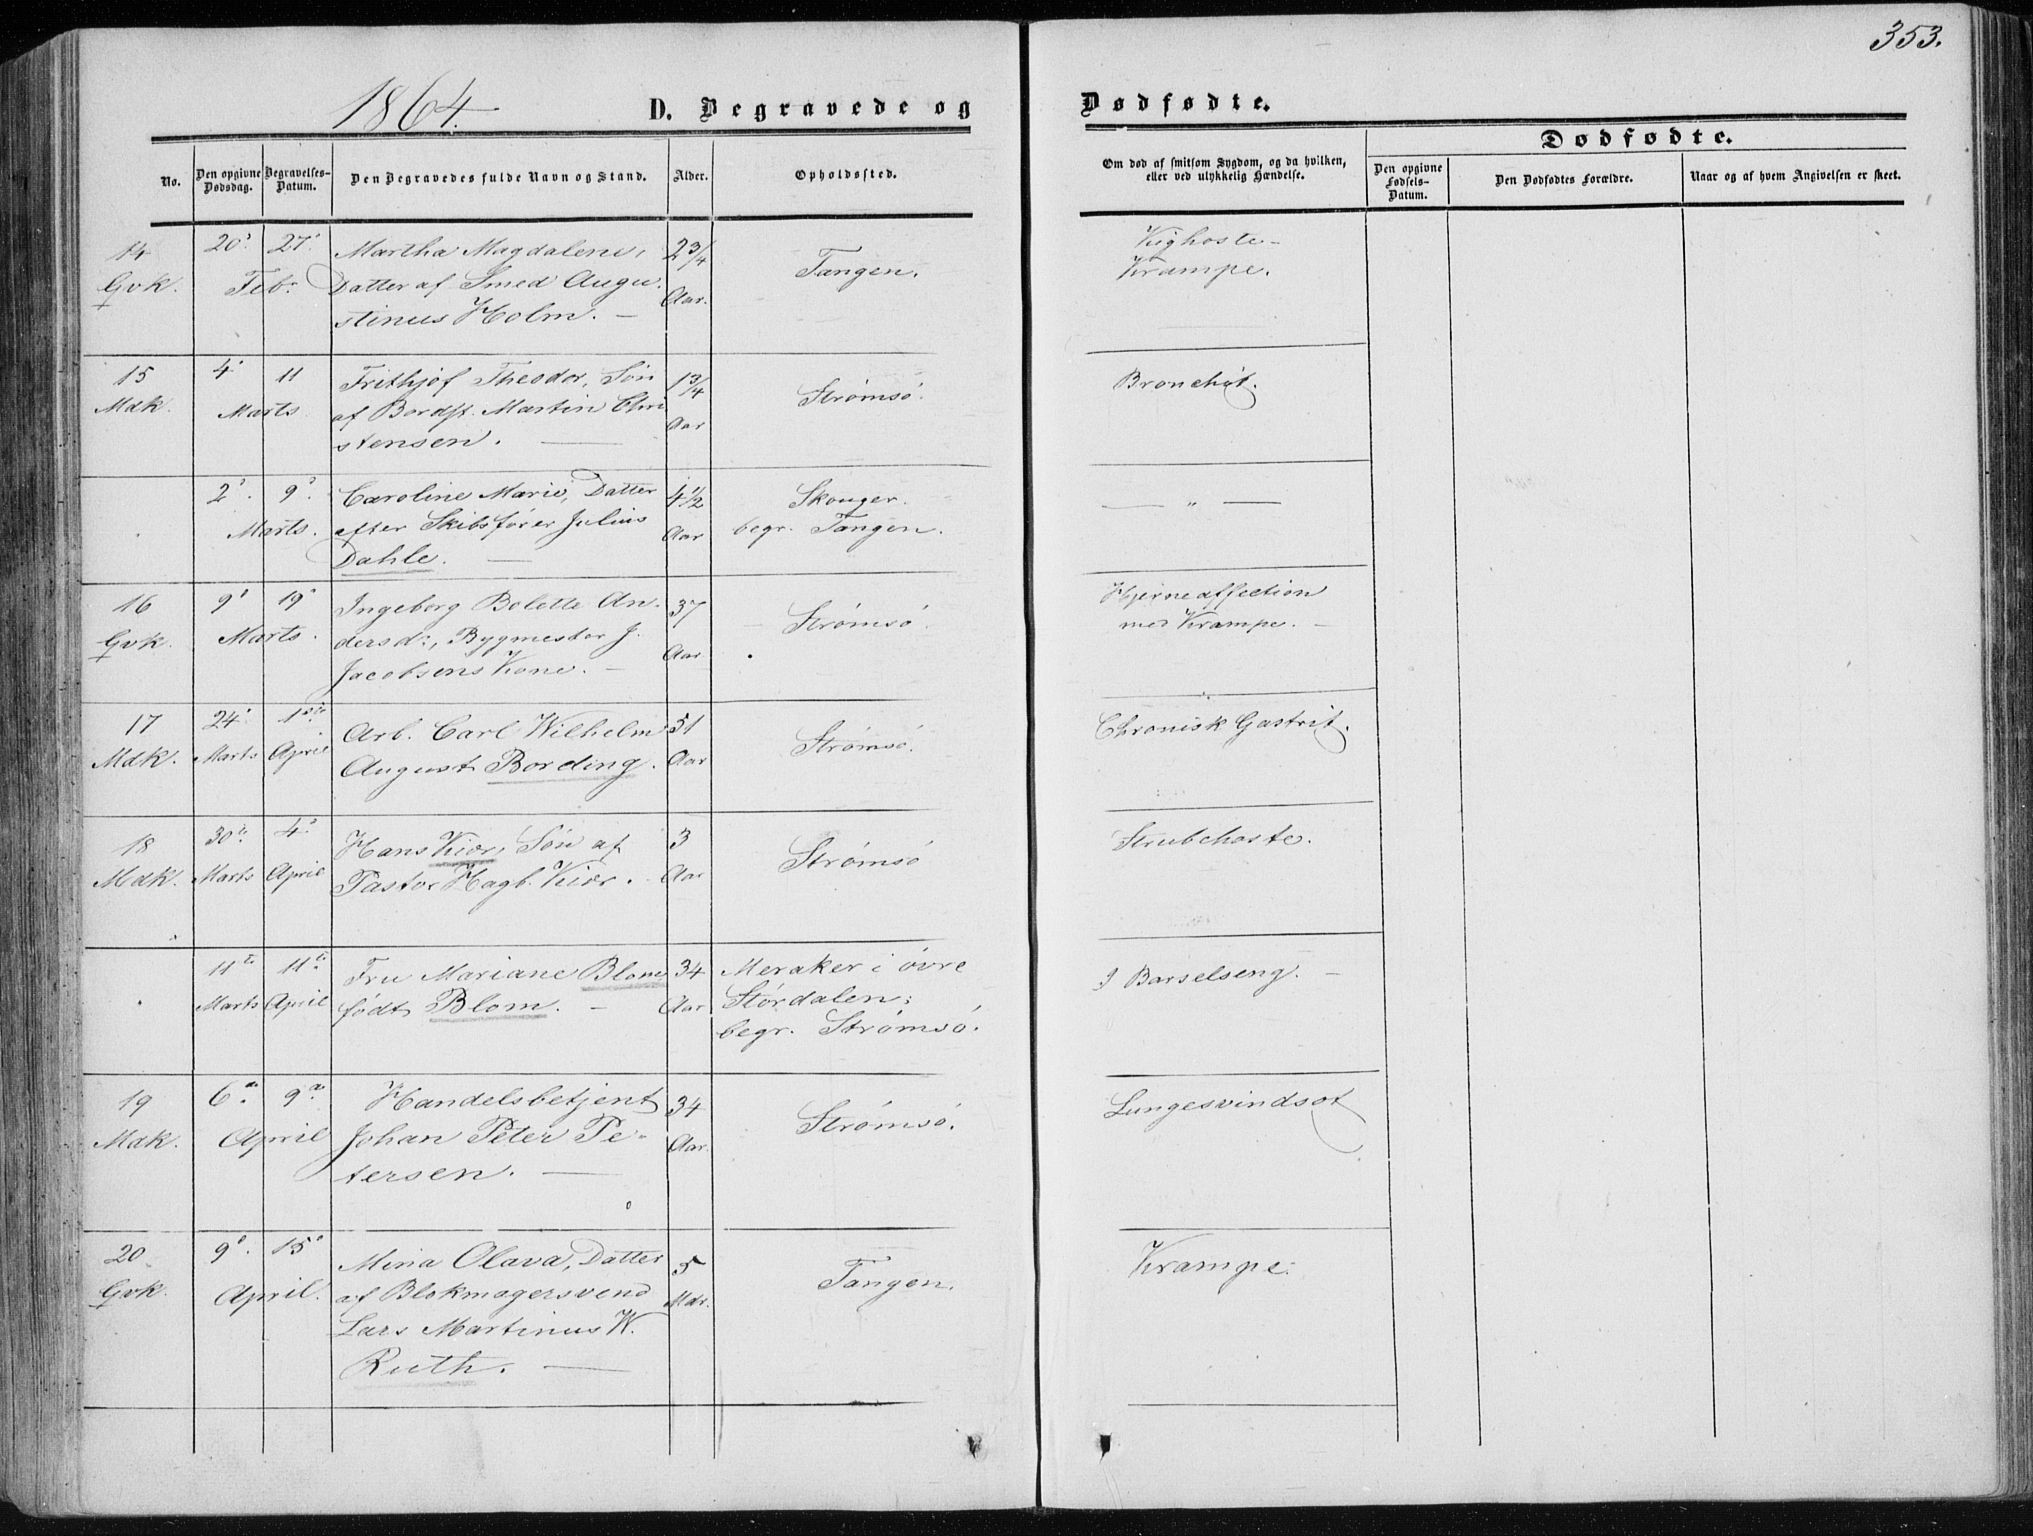 353.
1864.
D. Begravede og Dødfødte.
Dødfødte.
No.
Den opgivne Dødsdag.
Begravelses-Datum.
Den Begravedes fulde Navn og Stand.
Alder.
Opholdssted.
Om død af smitsom Sygdom, og da hvilken,
eller ved ulykkelig Hændelse.
Den opgivne Fødsels-Datum.
Den Dødfødtes Forældre.
Naar og af hvem Angivelsen er skeet.
14 20' 27' Martha Magdalene, 2 3/4 Tangen. Kighoste-
Gvk. Feb. Datter af Smed Augu- Aar. Krampe.
stinus Holm. —
15 4' 11 Frithjof Theodor, Søn 1 3/4 Strømsö. Bronchit.
Mdk. Marts af Bordsk. Martin Chri Aar
stensen. —
2'. 9'. Caroline Marie, Datter 4 1/2 Skouger. — " —
Marts. efter Skibsfører Julius Aar begr. Tangen.
Dahle. —
16 9' 19' Ingeborg Bolette An- 37 Strømsö. Hjerneaffection
Gvk. Marts. dersd:, Bygmester J. Aar med Krampe. —
Jacobsens Kone. —
17 24' 1ste Arb. Carl Wilhelm 51 Strømsö. Chronisk Gastrit.
Mdk. Marts April August Bording. Aar
18 30te 4' Hans Kiær, Søn af 3 Strømsö Strubehoste.
Mdk. Marts April Pastor Hagb. Kiær. Aar
11te 11te Fru Mariane Blom 34 Meraker i övre I Barselseng. —
Marts April født Blom. — Aar Stördalen;
begr. Strømsö.
19 6te 9de Handelsbetjent 34 Strømsö. Lungesvindsot
Mdk. April Johan Peter Pe- Aar.
tersen. —
20 9' 15' Mina Olava, Datter 5 Tangen. Krampe.
Gvk. April. af Blokmagersvend Mdr.
Lars Martinus W.
Ruth. —